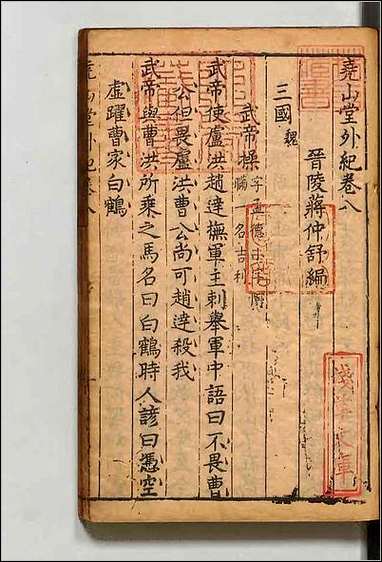 堯山堂外紀卷八
晉陵蔣仲舒編
三國 魏
武帝操 字孟德小字阿瞞一名吉利
武帝使盧洪趙達撫軍主刺舉軍中語曰不畏曹
公但畏盧洪曹公尚可趙達殺我
武帝與曹洪所乘之馬名曰白鶴時人諺曰憑空
虛躍曹家白鶴
堯山堂外紀卷八